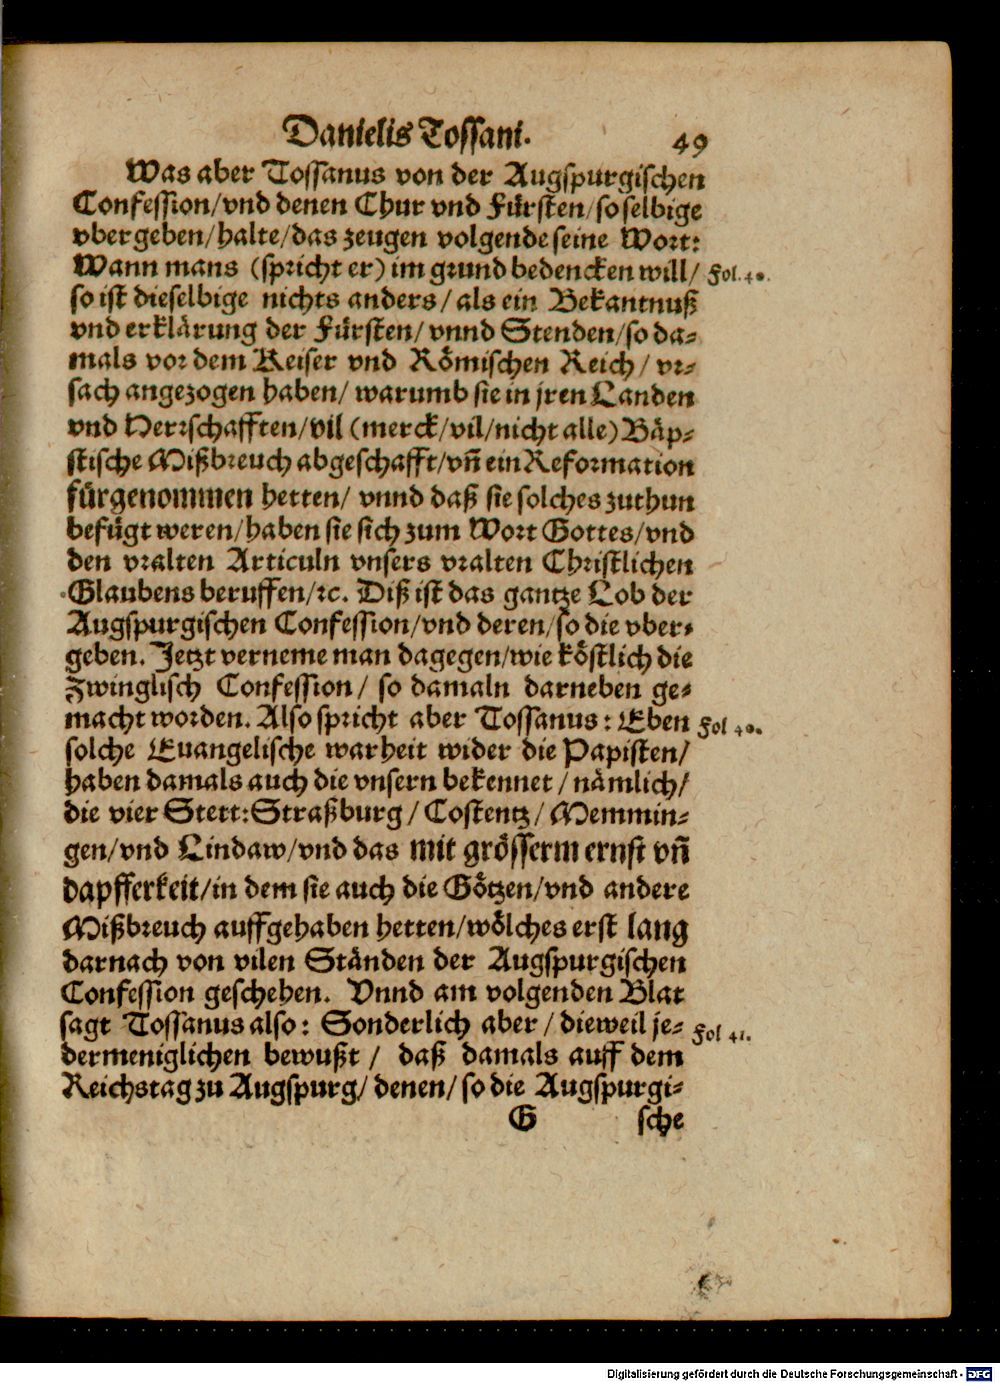 Danielis Tossani. 49
Was aber Tossanus von der Augspurgischen
Confession/vnd denen Chur vnd Fürsten/so selbige
vbergeben/halte/das zeugen volgende seine Wort:
Wann mans (spricht er) im grund bedencken will/ Fol. 40.
so ist dieselbige nichts anders/als ein Bekantnuß
vnd erklärung der Fürsten/vnnd Stenden/so da⸗
mals vor dem Keiser vnd Römischen Reich/vr⸗
sach angezogen haben/warumb sie in jren Landen
vnd Herrschafften/vil (merck/vil/nicht alle) Bäp⸗
stische Mißbreuch abgeschafft/vñ ein Reformation
fürgenommen hetten/vnnd daß sie solches zuthun
befügt weren/haben sie sich zum Wort Gottes/vnd
den vralten Articuln vnsers vralten Christlichen
Glaubens beruffen/ꝛc. Diß ist das gantze Lob der
Augspurgischen Confession/vnd deren/so die vber⸗
geben. Jetzt verneme man dagegen/wie köstlich die
Zwinglisch Confession/so damaln darneben ge⸗
macht worden. Also spricht aber Tossanus: Eben Fol 40.
solche Euangelische warheit wider die Papisten/
haben damals auch die vnsern bekennet/nämlich/
die vier Stett: Straßburg/Costentz/Memmin⸗
gen/vnd Lindaw/vnd das mit grösserm ernst vñ
dapfferkeit/in dem sie auch die Götzen/vnd andere
Mißbreuch auffgehaben hetten/wölches erst lang
darnach von vilen Ständen der Augspurgischen
Confession geschehen. Vnnd am volgenden Blat
sagt Tossanus also: Sonderlich aber/dieweil je⸗ Fol 41.
dermeniglichen bewußt/daß damals auff dem
Reichstag zu Augspurg/denen/so die Augspurgi⸗
G sche
Digitalisierung gefördert durch die Deutsche Forschungsgemeinschaft - DFG